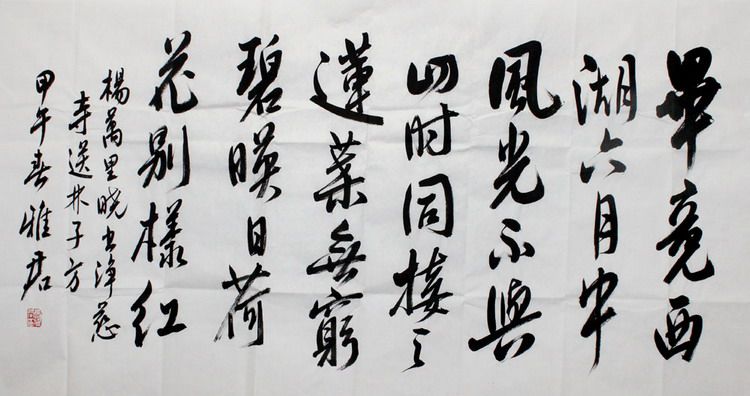 畢竟西
湖六月中
風光不與
四时同接天
蓮葉無窮
碧暎日荷
花别樣红
楊萬里晓出淨慈
寺送林子方
甲午春雅君